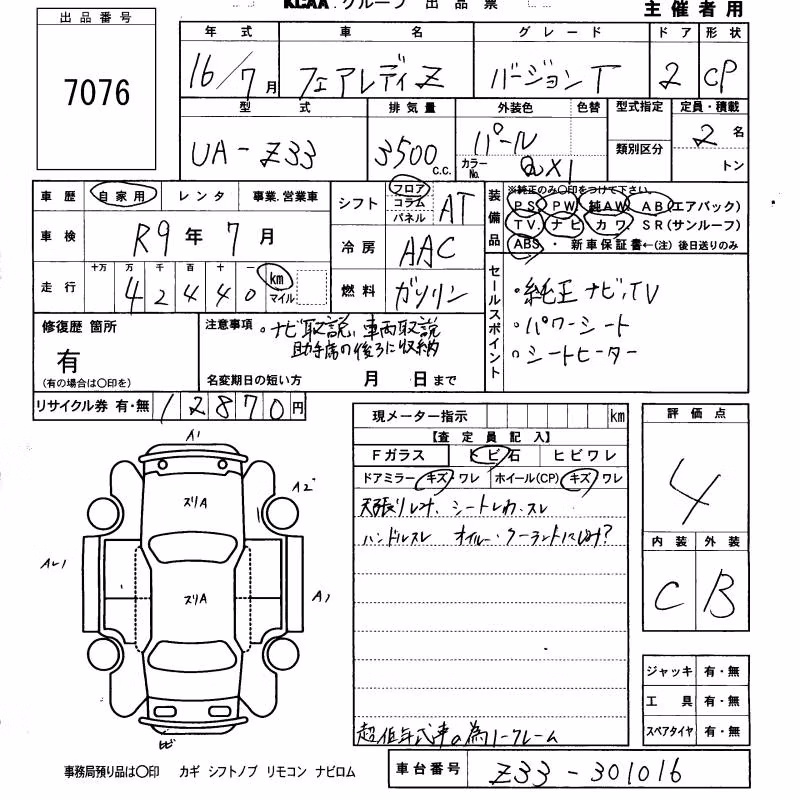 KCAA.グループ 出品票
主催者用
出品番号
7076
年式 車名 グレード ドア 形状
16/7月 フェアレディZ バージョンT 2 CP
型式 排気量 外装色 色替 型式指定 定員・積載
UA-Z33 3500c.c. パール 類別区分 2名
カラーNo. QX1 トン
車歴 自家用 レンタ 事業.営業車
シフト フロア コラム パネル AT
車検 R9年7月
冷房 AAC
走行 十万 万 千 百 十 一
42440 km マイル
燃料 ガソリン
装備品 ※純正のみ○印をつけて下さい。
PS PW 純AW AB(エアバック)
TV. ナビ カワ SR(サンルーフ)
ABS・新車保証書←(注)後日送りのみ
セールスポイント
・純正ナビ,TV
・パワーシート
・シートヒーター
修復歴 箇所
有
(有の場合は○印を)
注意事項 ・ナビ取説,車両取説
助手席の後ろに収納
名変期日の短い方 月 日まで
リサイクル券 有・無 12870円
現メーター指示 km
【査定員記入】
Fガラス トビ石 ヒビワレ
ドアミラー キズ ワレ ホイール(CP) キズ ワレ
天張りシミ、シートしわ、スレ
ハンドルスレ オイル・クーラントにじみ?
超低年式車の為ノークレーム
評価点
4
内装 外装
C B
ジャッキ 有・無
工具 有・無
スペアタイヤ 有・無
A1
スリA
A2
スリA
A1
ヒビ
事務局預り品は○印 カギ シフトノブ リモコン ナビロム
車台番号 Z33-301016